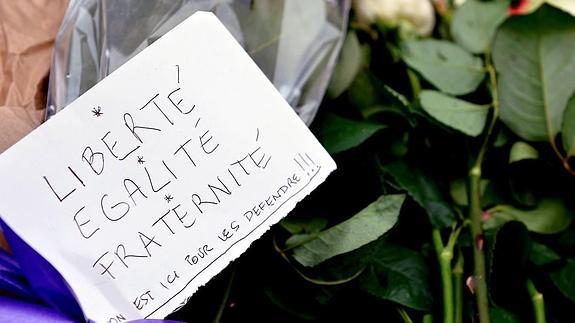 * LIBERTÉ
* EGALITÉ
* FRATERNITÉ
ON EST ICI POUR LES DEFENDRE!!!